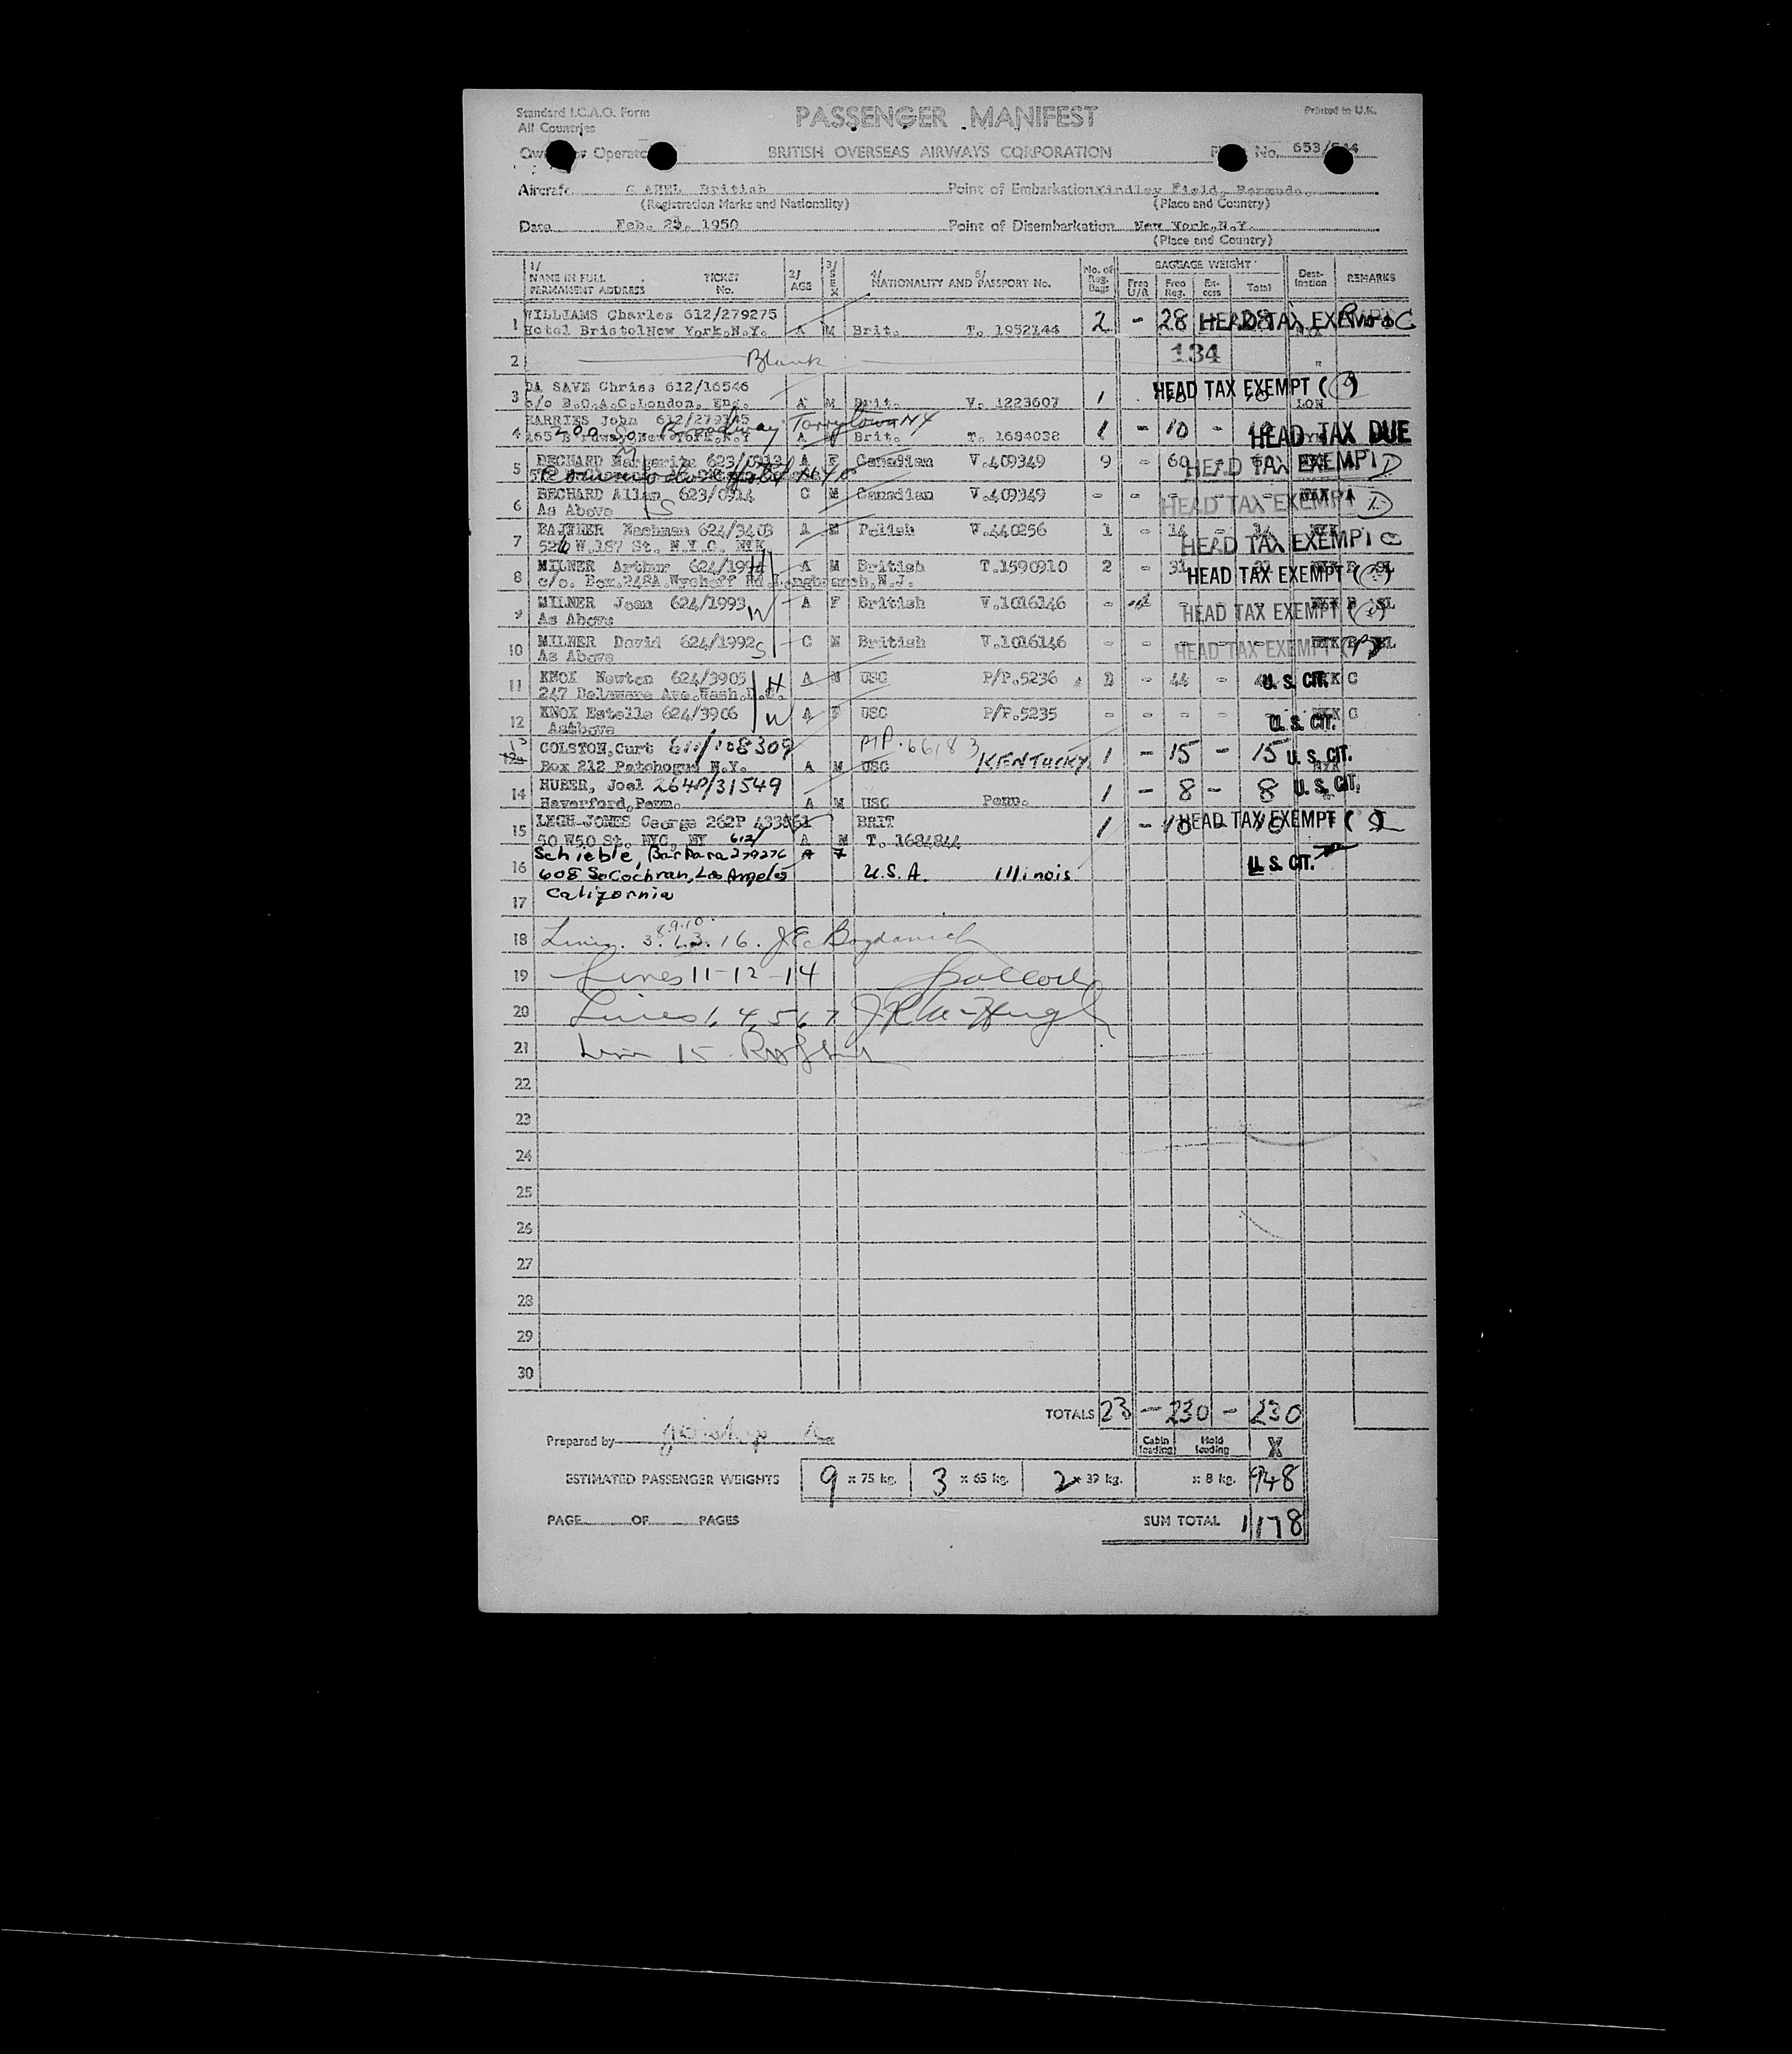 Standard I.C.A.O. Form
All Countries
PASSENGER MANIFEST
Printed in U.K.
or Operator
BRITISH OVERSEAS AIRWAYS CORPORATION
No. 653/
Aircraft British
Point of Embarkation Kindley Field, Bermuda.
(Registration Marks and Nationality)
(Place and Country)
Date Feb. 23, 1950
Point of Disembarkation New York,N.Y.
(Place and Country)
1/ NAME IN FULL PERMANENT ADDRESS TICKET No. 2/ AGE 3/ SEX 4/ NATIONALITY AND 5/ PASSPORT No. No. of Reg. Bags BAGGAGE WEIGHT Free U/R Free Reg. Ex-cess Total Dest-ination REMARKS
1 WILLIAMS Charles 612/279275
Hotel BristolNew York,N.Y. A M Brit. T. 1952144 2 - 28 - 28 HEAD TAX EXEMPT
2 Blank 134 "
3 DA SAVE Chriss 612/16546 HEAD TAX EXEMPT
c/o B.O.A.C.London, Eng. A M Brit. V. 1223607 1 LON
4 HARRIES John 612/279145
200 So. Broadway Tarrytown NY
A Brit. T. 1684032 1 - 10 - 10 HEAD TAX DUE
5 BECHARD Margarite 623/0913 A F Canadian V.409349 9 - 60 HEAD TAX EXEMPT D
6 BECHARD Allan 623/0914 S C M Canadian V.409349 - - - HEAD TAX EXEMPT
As Above
7 Nachman 624/3403 A M Polish V.440256 1 - 14 - 14 NYK
526 W.187 St. N.Y.C. NYK. HEAD TAX EXEMPT C
8 MILNER Arthur 624/1994 H A M British T.1590910 2 - 31 HEAD TAX EXEMPT
c/o. Box.248A.Wychoff Rd.Longbranch,N.J.
9 MILNER Joan 624/1993 W A F British V.1016146 - HEAD TAX EXEMPT
As Above
10 MILNER David 624/1992 S C M British V.1016146 - - - HEAD TAX EXEMPT
As Above
11 KNOX Newton 624/3905 H A M USC P/P.5236 - 44 - U. S. CIT. NYK C
247 Delaware Ave.Wash.D.C.
12 KNOX Estelle 624/3906 W A F USC P/P.5235 - - - - U. S. CIT. NYK C
13 COLSTON,Curt 611/108309 66183 KENTUCKY 1 - 15 - 15 U. S. CIT.
Box 212 Patchogue N.Y. A M USC
14 HUBER, Joel 264P/31549 1 - 8 - 8 U. S. CIT.
Haverford,Penn. A M USC Penn.
15 LEGH-JONES George 262P 433561 BRIT 1 - 10 - 10 HEAD TAX EXEMPT
50 W50 St. NYC, NY A M T. 1684844
16 Schieble, Barbara 612/279276 A F
608 So Cochran, Los Angeles U.S.A. Illinois U. S. CIT.
17 California
18 Lines 3. 8.9.10 13. 16. J.E. Bogdanich
19 Lines 11-12-14
20 Lines 1, 4, 5, 6, 7
21 Line 15
22
23
24
25
26
27
28
29
30
TOTALS 23 - 230 - 230
Prepared by
Cabin loading Hold loading X
ESTIMATED PASSENGER WEIGHTS 9 x 75 kg. 3 x 65 kg. 2 x 39 kg. x 8 kg. 948
PAGE OF PAGES
SUM TOTAL 1178